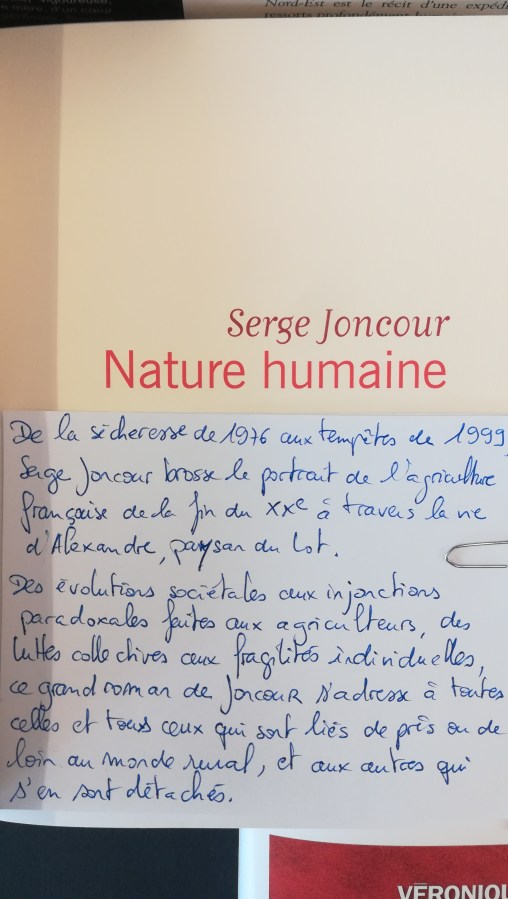 vigoureuse,
Nord-Est est le récit d'une expédi
Serge Joncour
Nature humaine
De la sècheresse de 1976 aux tempêtes de 1999,
Serge Joncour brosse le portrait de l'agriculture
française de la fin du XXe à travers la vie
d'Alexandre, paysan du Lot.
Des évolutions sociétales aux injonctions
paradoxales faites aux agriculteurs, des
luttes collectives aux fragilités individuelles,
ce grand roman de Joncour s'adresse à toutes
celles et tous ceux qui sont liés de près ou de
loin au monde rural, et aux autres qui
s'en sont détachés.
VÉRONIQU